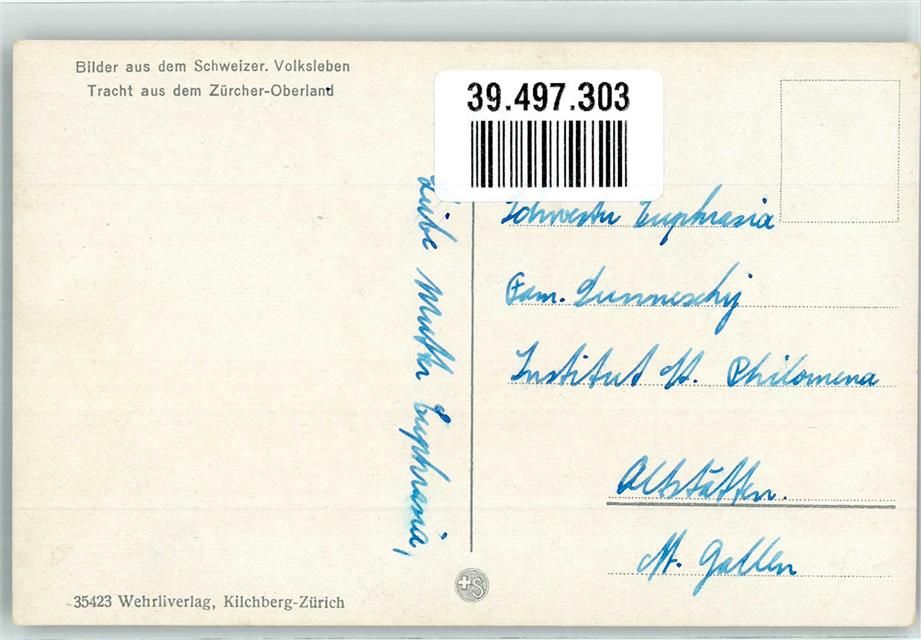 Bilder aus dem Schweizer. Volksleben
Tracht aus dem Zürcher-Oberland
39.497.303
Liebe Mutter Euphrasia,
Schwester Euphrasia
Fam.
Institut St. Philomena
Altstätten.
St. Gallen
35423 Wehrliverlag, Kilchberg-Zürich